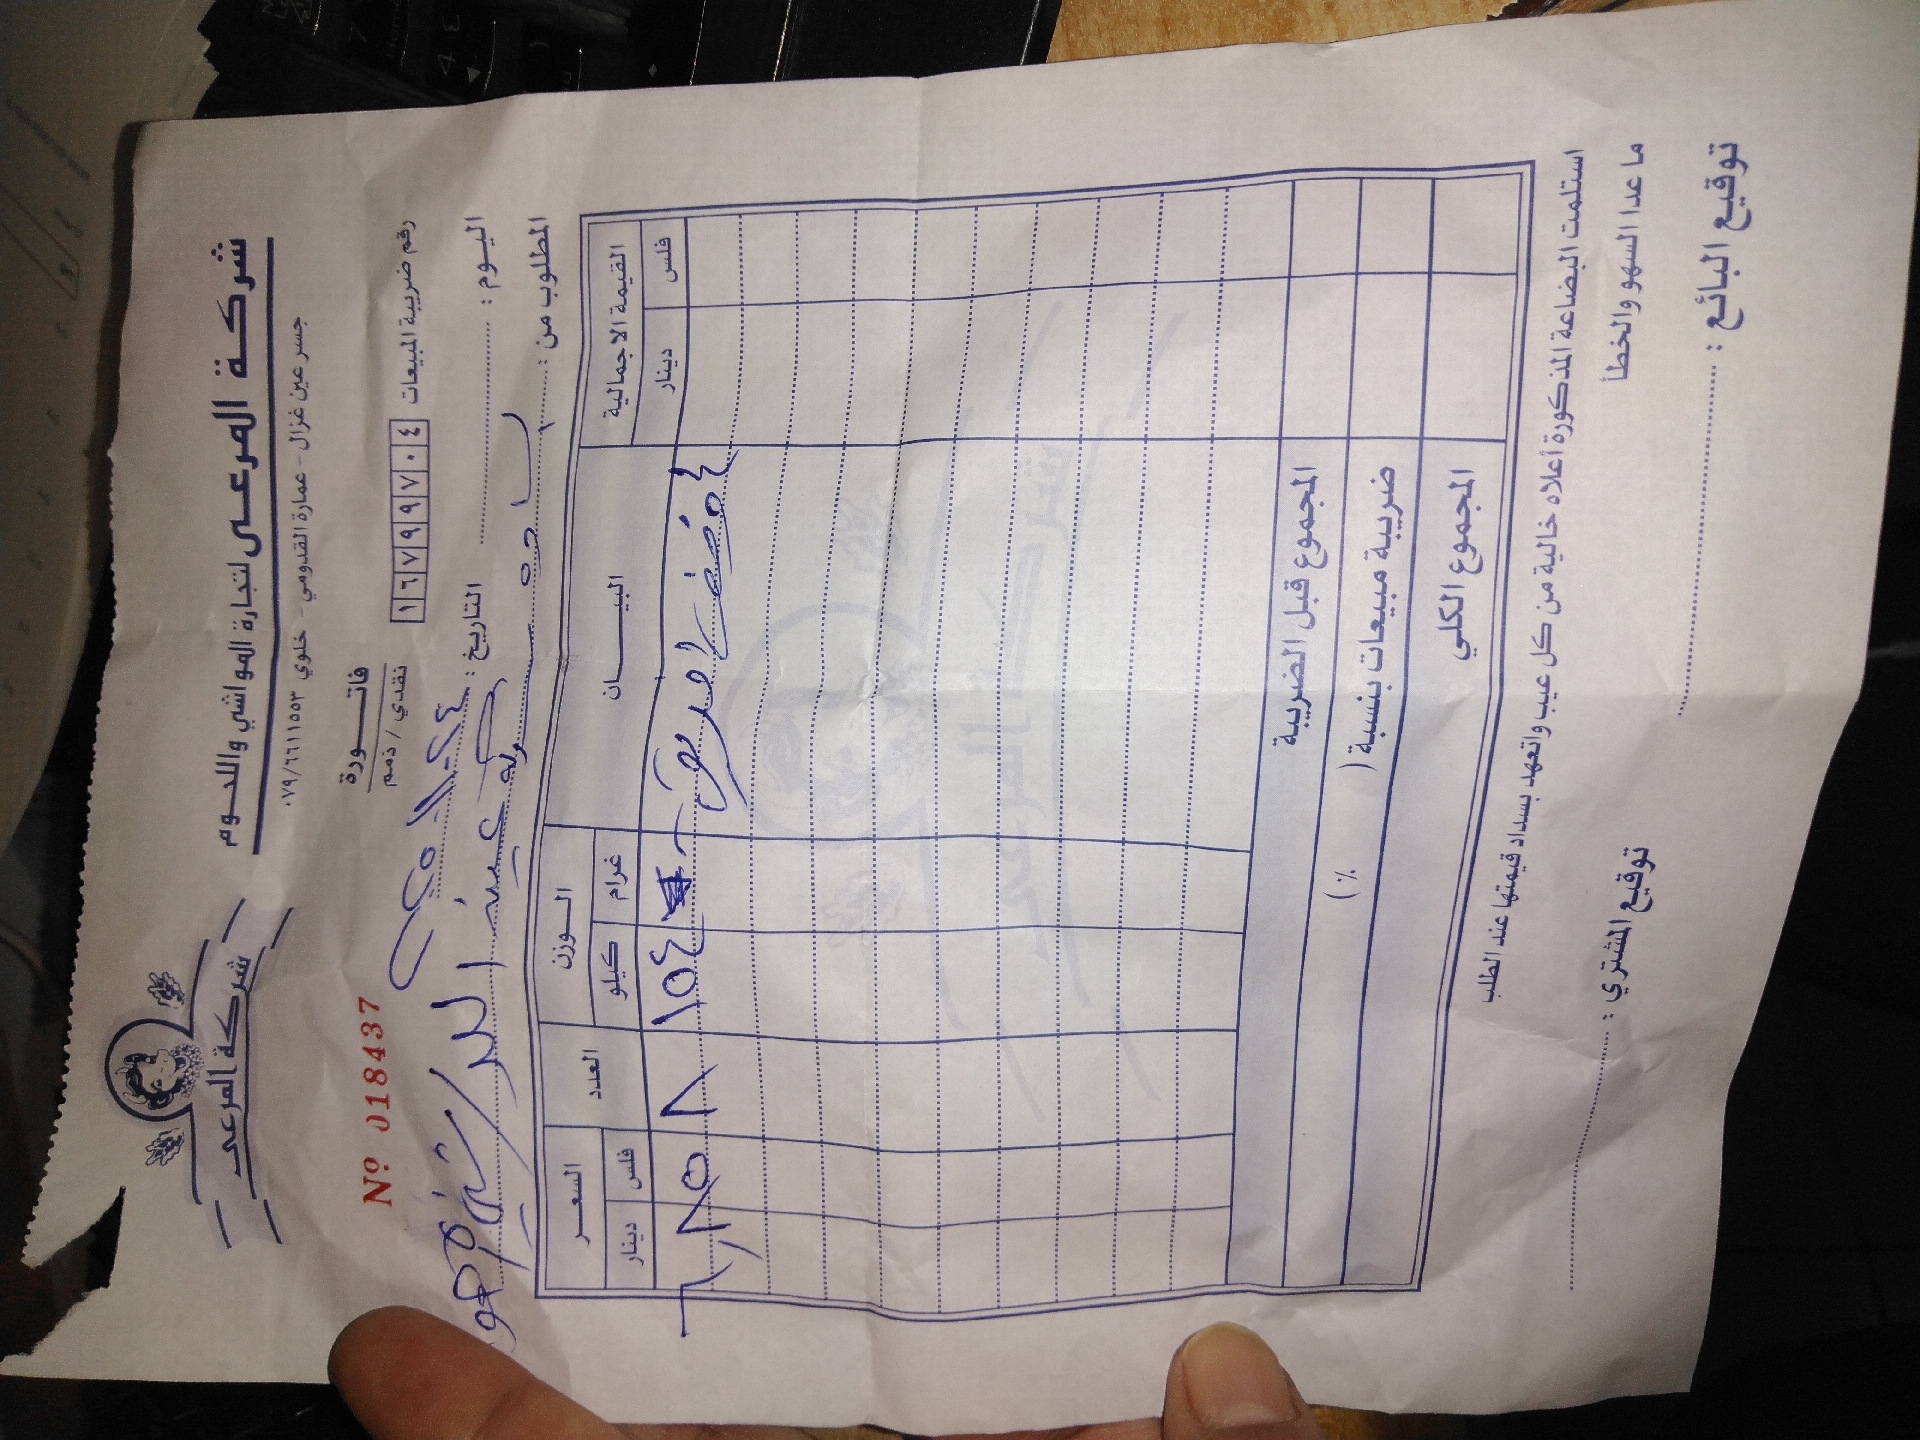 شركة المرعى لتجارة المواشي واللحوم
شركة المرعى
جسر عين غزال - عمارة القدومي - خلوي ٠٧٩/٦٦١١٥٥٣
فاتورة
نقدي / ذمم
Nº 018437
رقم ضريبة المبيعات ١٦٧٩٩٧٠٤
اليوم : التاريخ :
المطلوب من :
القيمة الاجمالية البيان الوزن العدد السعر
دينار فلس كيلو غرام دينار فلس
١٥٤ ٨
المجموع قبل الضريبة
ضريبة مبيعات بنسبة ( ٪ )
المجموع الكلي
استلمت البضاعة المذكورة أعلاه خالية من كل عيب واتعهد بسداد قيمتها عند الطلب
ما عدا السهو والخطأ
توقيع البائع : توقيع المشتري :